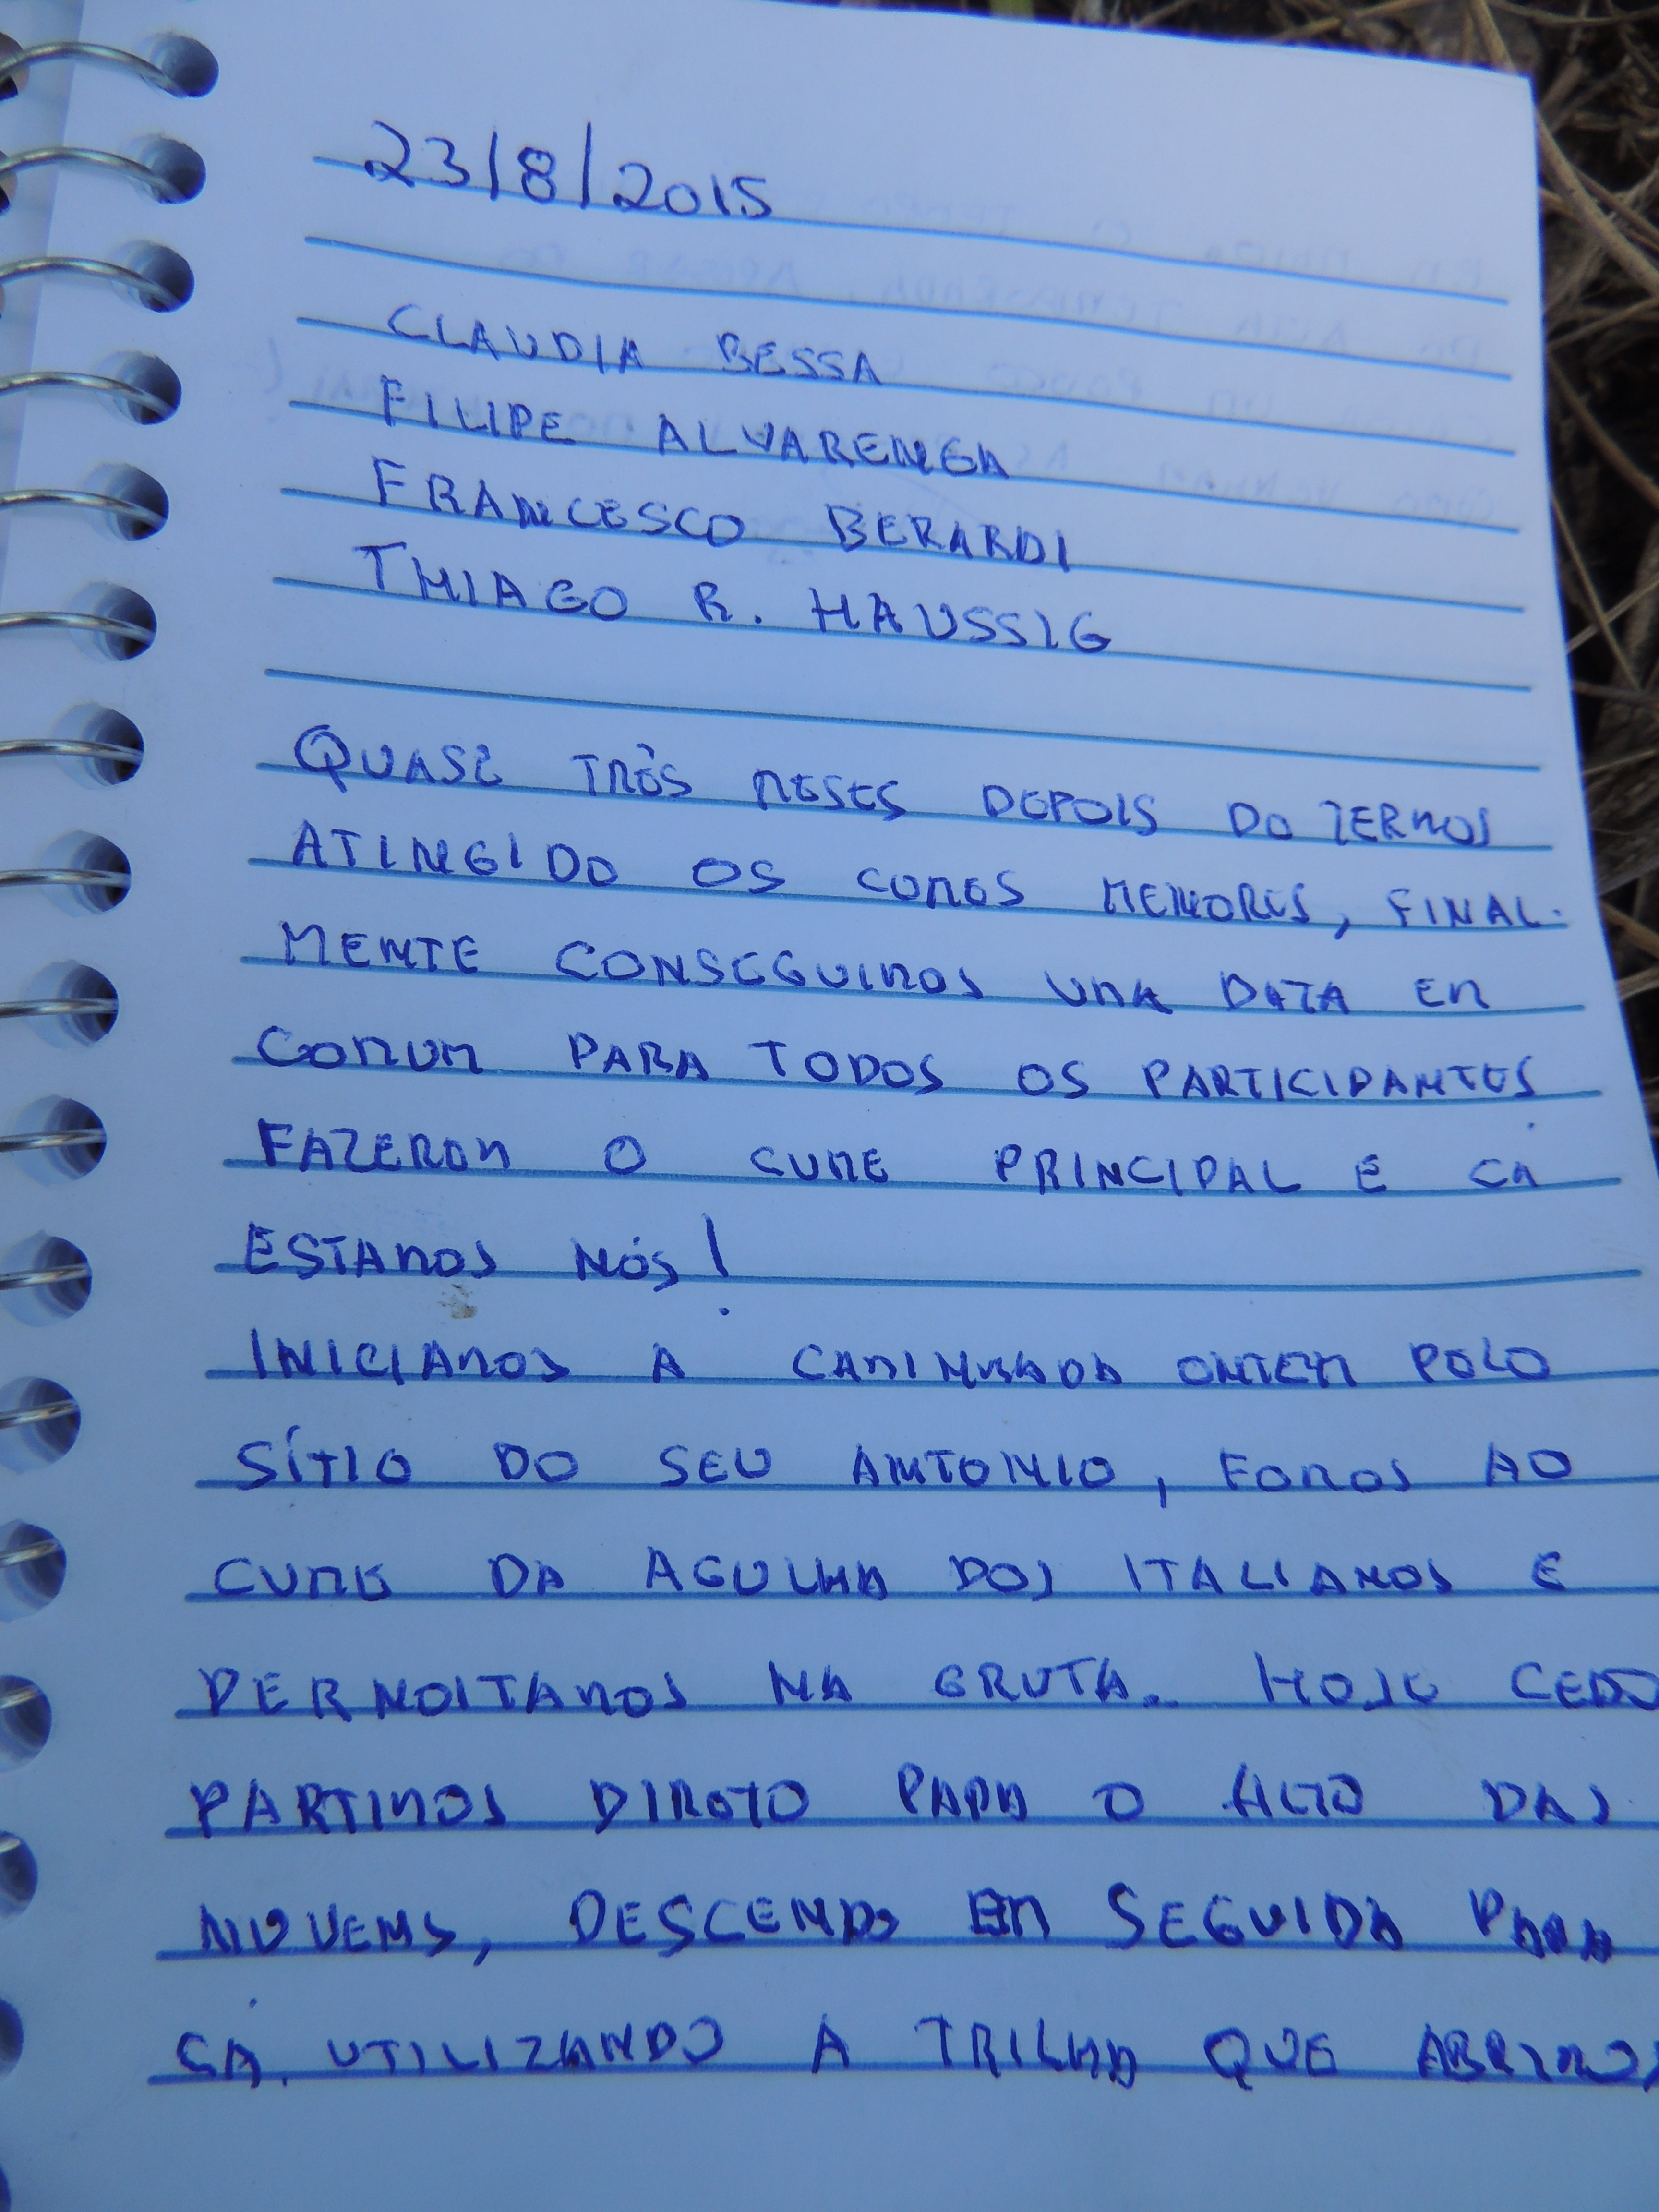 23/8/2015
CLAUDIA BESSA
FILIPE ALVARENGA
FRANCESCO BERARDI
THIAGO R. HAUSSIG
QUASE TRÊS MESES DEPOIS DE TERMOS
ATINGIDO OS CUMES MENORES, FINAL-
MENTE CONSEGUIMOS UMA DATA EM
COMUM PARA TODOS OS PARTICIPANTES
FAZEREM O CUME PRINCIPAL E CÁ
ESTAMOS NÓS!
INICIAMOS A CAMINHADA ONTEM PELO
SÍTIO DO SEU ANTONIO, FOMOS AO
CUME DA AGULHA DOS ITALIANOS E
PERNOITAMOS NA GRUTA. HOJE CEDO
PARTIMOS DIRETO PARA O ALTO DAS
NUVENS, DESCENDO EM SEGUIDA PARA
CÁ, UTILIZANDO A TRILHA QUE ABRIMOS